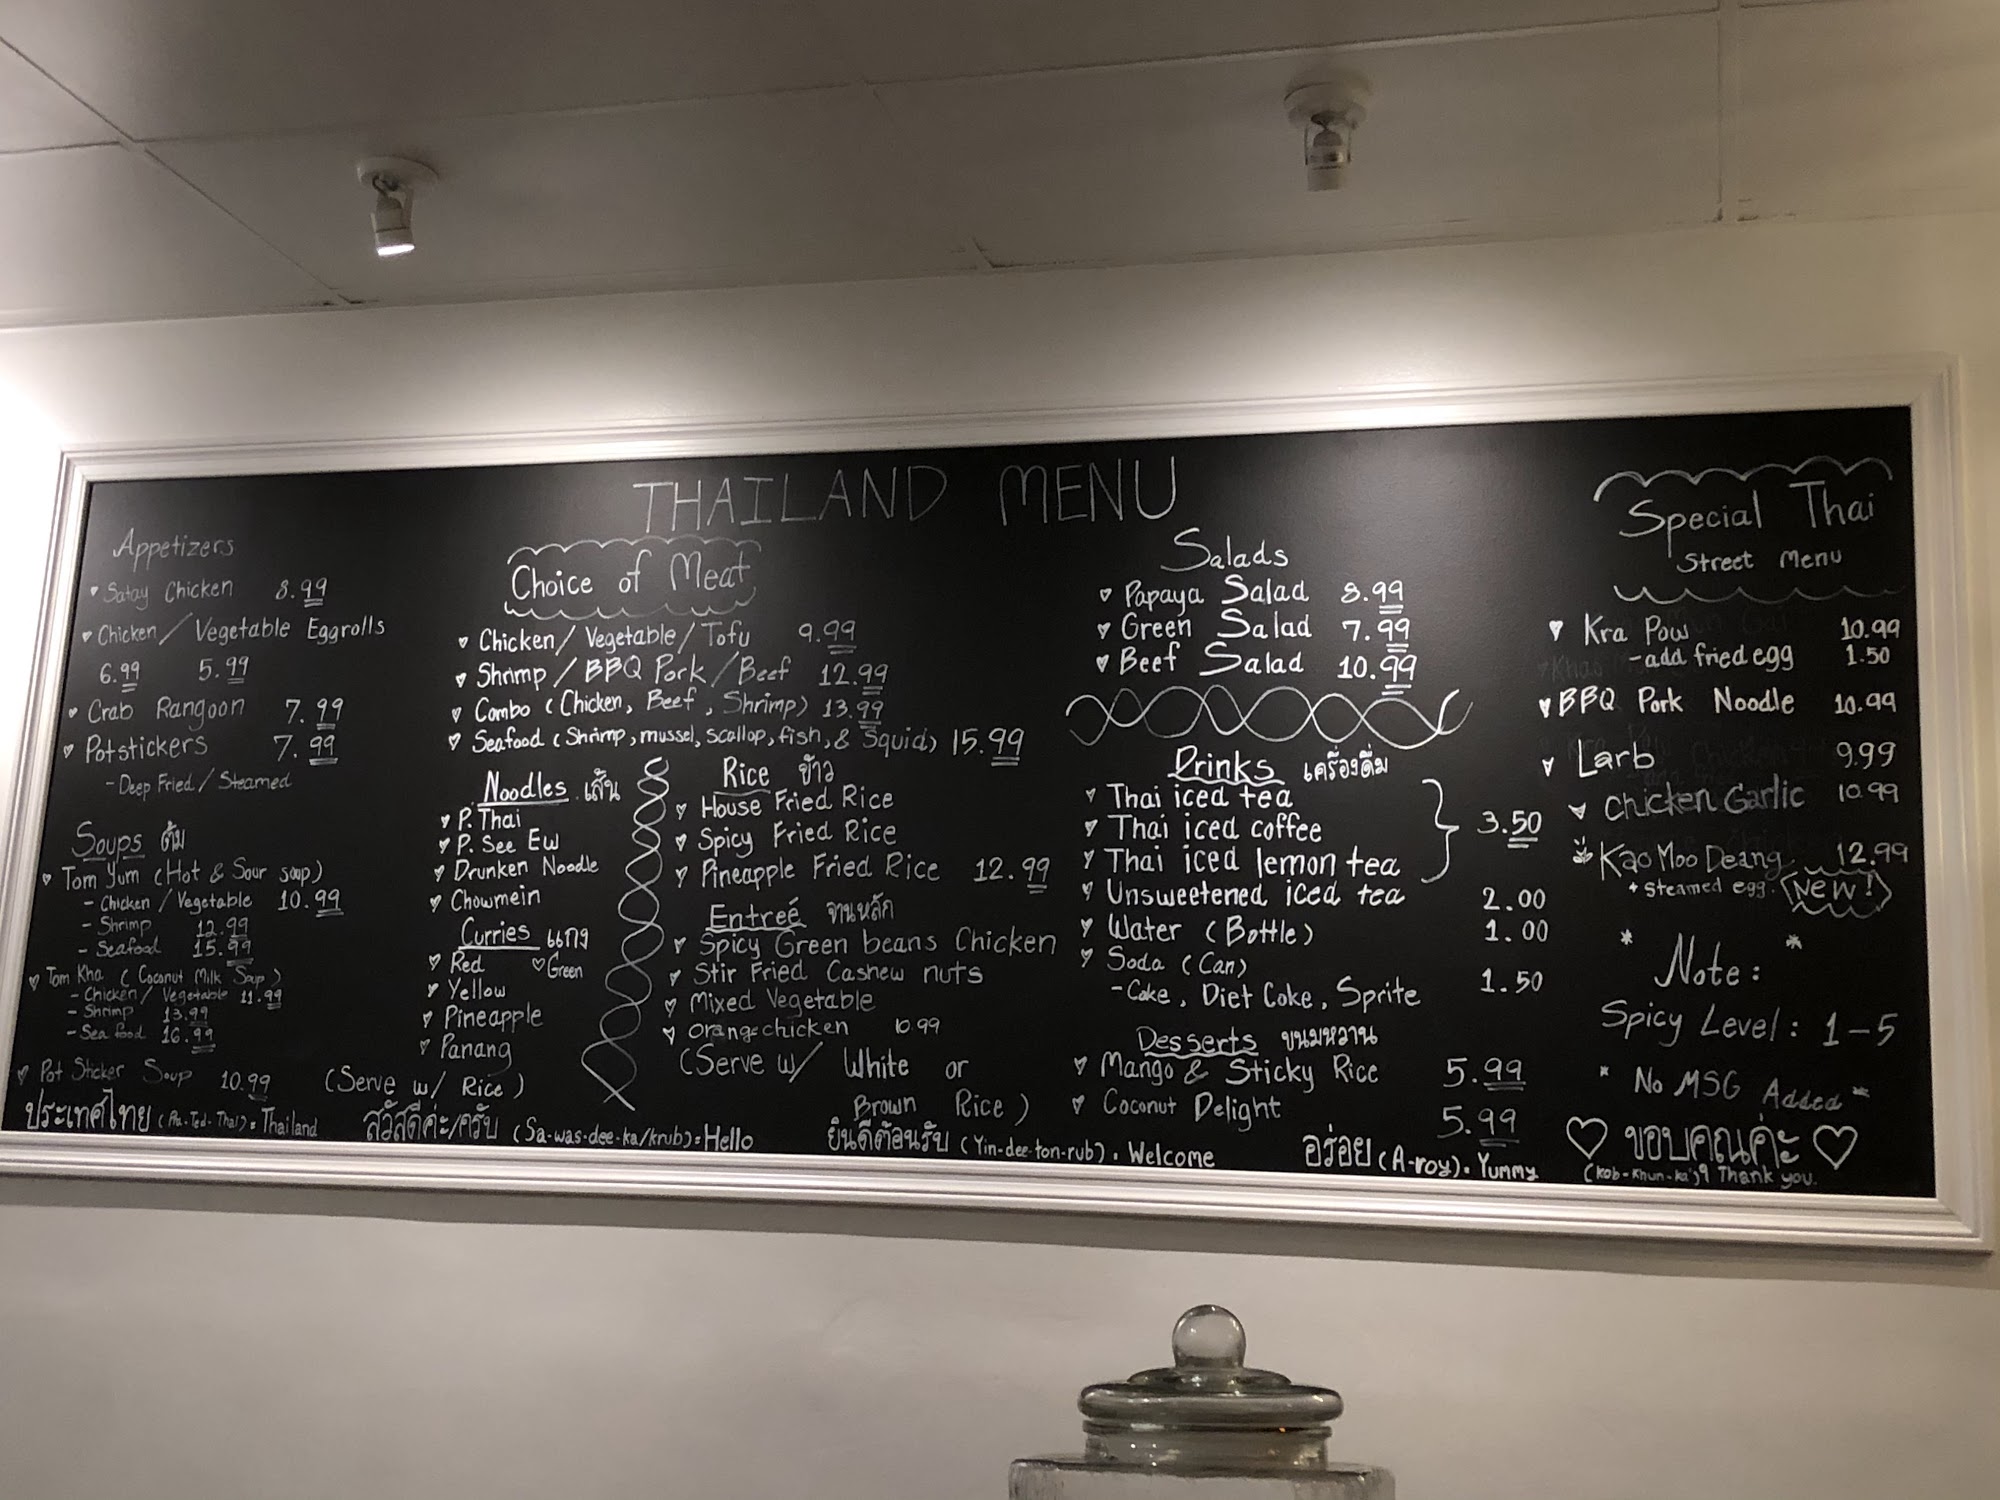 THAILAND MENU
Appetizers
Satay Chicken 8.99
Chicken / Vegetable Eggrolls
6.99 5.99
Crab Rangoon 7.99
Potstickers 7.99
- Deep Fried / Steamed
Soups ต้ม
Tom Yum (Hot & Sour soup)
- Chicken / Vegetable 10.99
- Shrimp 12.99
- Seafood 15.99
Tom Kha (Coconut Milk Soup)
- Chicken / Vegetable 11.99
- Shrimp 13.99
- Sea food 16.99
Pot Sticker Soup 10.99
Choice of Meat
Chicken / Vegetable / Tofu 9.99
Shrimp / BBQ Pork / Beef 12.99
Combo (Chicken, Beef, Shrimp) 13.99
Seafood (Shrimp, mussel, scallop, fish, & Squid) 15.99
Noodles เส้น
P. Thai
P. See Ew
Drunken Noodle
Chowmein
Curries แกง
Red Green
Yellow
Pineapple
Panang
(Serve w/ Rice)
Rice ข้าว
House Fried Rice
Spicy Fried Rice
Pineapple Fried Rice 12.99
Entreé จานหลัก
Spicy Green beans Chicken
Stir Fried Cashew nuts
Mixed Vegetable
orange chicken 10.99
(Serve w/ White or
Brown Rice)
Salads
Papaya Salad 8.99
Green Salad 7.99
Beef Salad 10.99
Drinks เครื่องดื่ม
Thai iced tea
Thai iced coffee 3.50
Thai iced lemon tea
Unsweetened iced tea 2.00
Water (Bottle) 1.00
Soda (Can)
- Coke, Diet Coke, Sprite 1.50
Desserts ขนมหวาน
Mango & Sticky Rice 5.99
Coconut Delight 5.99
Special Thai
Street Menu
Kra Pow 10.99
- add fried egg 1.50
BBQ Pork Noodle 10.99
Larb 9.99
Chicken Garlic 10.99
Kao Moo Deang 12.99
+ steamed egg. New!
* Note: *
Spicy Level: 1-5
* No MSG Added *
ประเทศไทย (Pra-Ted-Thai) = Thailand
สวัสดีค่ะ/ครับ (Sa-was-dee-ka/krub) = Hello
ยินดีต้อนรับ (Yin-dee-ton-rub) = Welcome
อร่อย (A-roy) = Yummy
ขอบคุณค่ะ
(Kob-Khun-ka) Thank you.